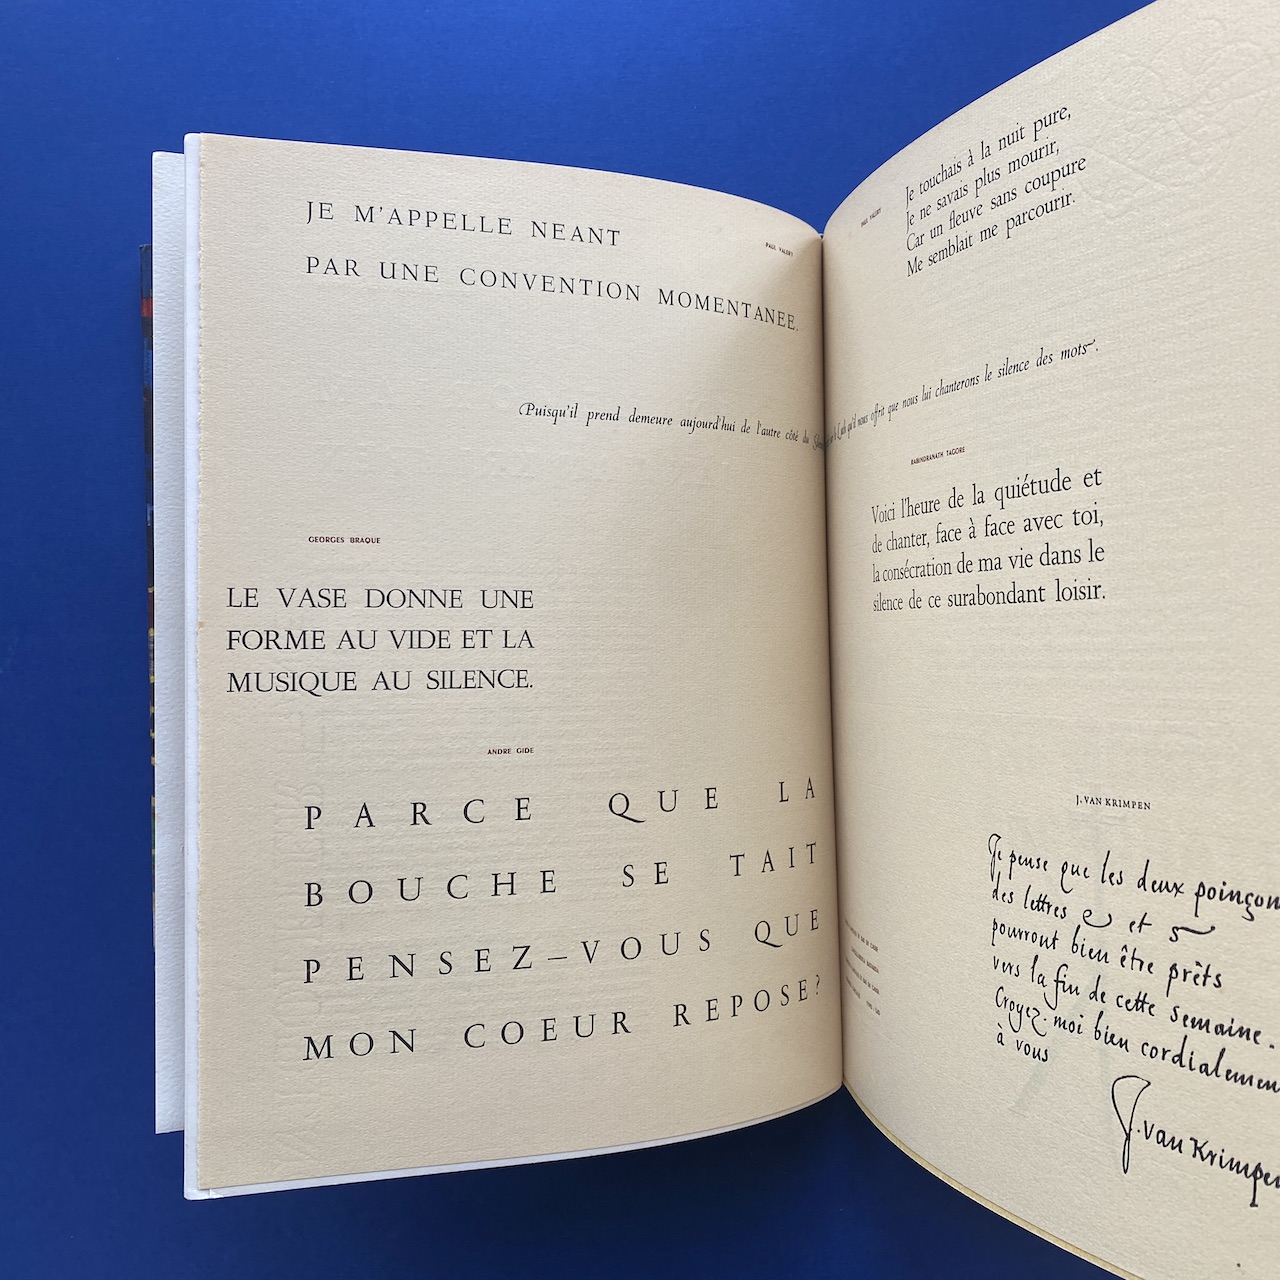 JE M'APPELLE NEANT
PAUL VALERY
PAR UNE CONVENTION MOMENTANEE.
Puisqu'il prend demeure aujourd'hui de l'autre côté du
GEORGES BRAQUE
LE VASE DONNE UNE
FORME AU VIDE ET LA
MUSIQUE AU SILENCE.
ANDRE GIDE
PARCE QUE LA
BOUCHE SE TAIT
PENSEZ–VOUS QUE
MON COEUR REPOSE?
PAUL VALERY
Je touchais à la nuit pure,
Je ne savais plus mourir,
Car un fleuve sans coupure
Me semblait me parcourir.
qu'il nous offrit que nous lui chanterons le silence des mots.
RABINDRANATH TAGORE
Voici l'heure de la quiétude et
de chanter, face à face avec toi,
la consécration de ma vie dans le
silence de ce surabondant loisir.
J. VAN KRIMPEN
Je pense que les deux poinçon
des lettres e et s
pourront bien être prêts
vers la fin de cette semaine.
Croyez-moi bien cordialemen
à vous
J. van Krimpen